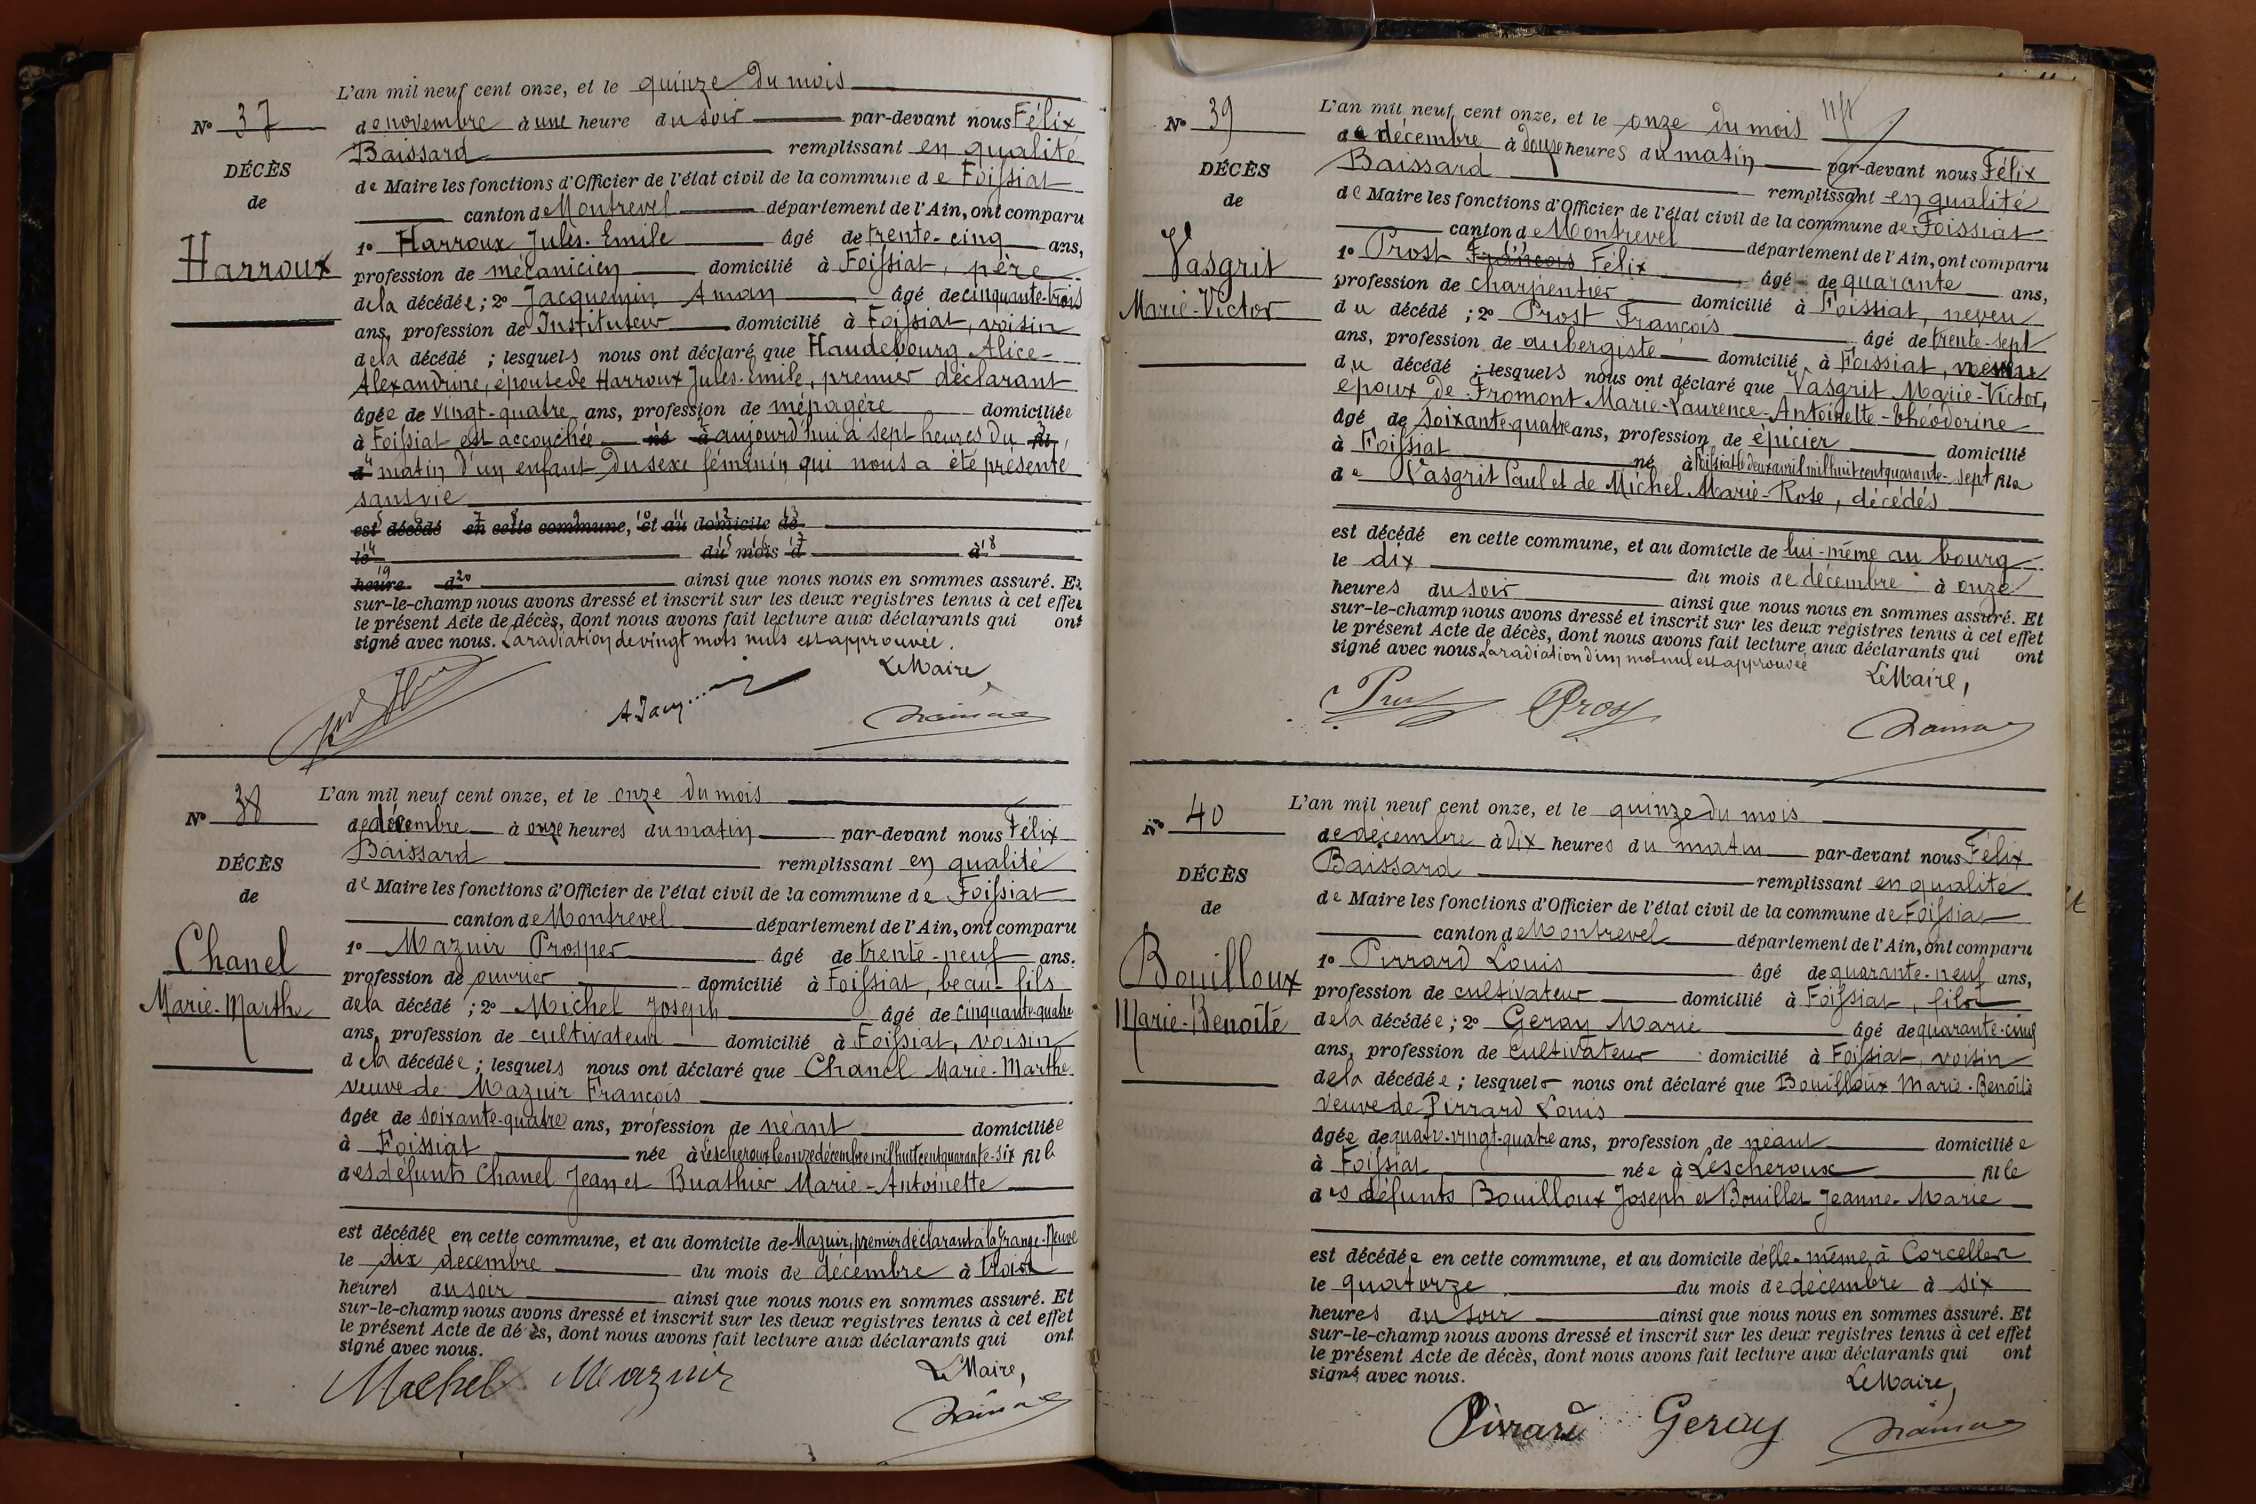 L'an mil neuf cent onze, et le quinze du mois
N° 37
de novembre à une heure du soir par-devant nous Félix
Baissard remplissant en qualité
DÉCÈS
de Maire les fonctions d'Officier de l'état civil de la commune de Foissiat
de
canton de Montrevel département de l'Ain, ont comparu
Harroux
1° Harroux Jules-Emile âgé de trente-cinq ans,
profession de mécanicien domicilié à Foissiat, père
de la décédée; 2° Jacquemin Aman âgé de cinquante-trois
ans, profession de Instituteur domicilié à Foissiat, voisin
de la décédé ; lesquels nous ont déclaré que Haudebourg Alice-
Alexandrine, épouse de Harroux Jules-Emile, premier déclarant
âgée de vingt-quatre ans, profession de ménagère domiciliée
à Foissiat est accouchée né à aujourd'hui à sept heures du fil
d matin d'un enfant du sexe féminin qui nous a été présenté
sans vie
est décédé en cette commune, et au domicile de
le du mois d à
heure d ainsi que nous nous en sommes assuré. Et
sur-le-champ nous avons dressé et inscrit sur les deux registres tenus à cet effet
le présent Acte de décès, dont nous avons fait lecture aux déclarants qui ont
signé avec nous. La radiation de vingt mots nuls est approuvée.
Le Maire,
L'an mil neuf cent onze, et le onze du mois
N° 38
de décembre à onze heures du matin par-devant nous Félix
Baissard remplissant en qualité
DÉCÈS
de Maire les fonctions d'Officier de l'état civil de la commune de Foissiat
de
canton de Montrevel département de l'Ain, ont comparu
Chanel
1° Mazuir Prosper âgé de trente-neuf ans.
profession de ouvrier domicilié à Foissiat, beau-fils
Marie-Marthe
de la décédé ; 2° Michel Joseph âgé de cinquante-quatre
ans, profession de cultivateur domicilié à Foissiat, voisin
de la décédée ; lesquels nous ont déclaré que Chanel Marie-Marthe
veuve de Mazuir François
âgée de soixante-quatre ans, profession de néant domiciliée
à Foissiat née à Lescheroux le onze décembre mil huit cent quarante-six fille
des défunts Chanel Jean et Buathier Marie-Antoinette
est décédée en cette commune, et au domicile de Mazuir, premier déclarant à la Grange-Neuve
le dix décembre du mois de décembre à trois
heures du soir ainsi que nous nous en sommes assuré. Et
sur-le-champ nous avons dressé et inscrit sur les deux registres tenus à cet effet
le présent Acte de décès, dont nous avons fait lecture aux déclarants qui ont
signé avec nous.
Le Maire,
Michel Mazuir
L'an mil neuf cent onze, et le onze du mois
N° 39
de décembre à douze heures du matin par-devant nous Félix
Baissard remplissant en qualité
DÉCÈS
de Maire les fonctions d'Officier de l'état civil de la commune de Foissiat
de
canton de Montrevel département de l'Ain, ont comparu
Vasgrit
1° Prost François Félix âgé de quarante ans,
profession de charpentier domicilié à Foissiat, neveu
Marie-Victor
du décédé ; 2° Prost François âgé de trente-sept
ans, profession de aubergiste domicilié à Foissiat, neveu
du décédé ; lesquels nous ont déclaré que Vasgrit Marie-Victor,
époux de Fromont Marie-Laurence-Antoinette-Théodorine
âgé de soixante-quatre ans, profession de épicier domicilié
à Foissiat né à Foissiat le deux avril mil huit cent quarante-sept fils
de Vasgrit Paul et de Michel Marie-Rose, décédés
est décédé en cette commune, et au domicile de lui-même au bourg
le dix du mois de décembre à onze
heures du soir ainsi que nous nous en sommes assuré. Et
sur-le-champ nous avons dressé et inscrit sur les deux registres tenus à cet effet
le présent Acte de décès, dont nous avons fait lecture aux déclarants qui ont
signé avec nous La radiation d'un mot nul est approuvée
Le Maire,
Prost
L'an mil neuf cent onze, et le quinze du mois
N° 40
de décembre à dix heures du matin par-devant nous Félix
Baissard remplissant en qualité
DÉCÈS
de Maire les fonctions d'Officier de l'état civil de la commune de Foissiat
de
canton de Montrevel département de l'Ain, ont comparu
Bouilloux
1° Pirrard Louis âgé de quarante-neuf ans,
profession de cultivateur domicilié à Foissiat, fils
Marie-Benoîte
de la décédée; 2° Geray Marie âgé de quarante-cinq
ans, profession de cultivateur domicilié à Foissiat, voisin
de la décédée ; lesquels nous ont déclaré que Bouilloux Marie-Benoîte
veuve de Pirrard Louis
âgée de quatre-vingt-quatre ans, profession de néant domiciliée
à Foissiat née à Lescheroux fille
des défunts Bouilloux Joseph et Bouiller Jeanne-Marie
est décédée en cette commune, et au domicile d'elle-même à Corcelles
le quatorze du mois de décembre à six
heures du soir ainsi que nous nous en sommes assuré. Et
sur-le-champ nous avons dressé et inscrit sur les deux registres tenus à cet effet
le présent Acte de décès, dont nous avons fait lecture aux déclarants qui ont
signé avec nous.
Le Maire,
Pirrard Geray